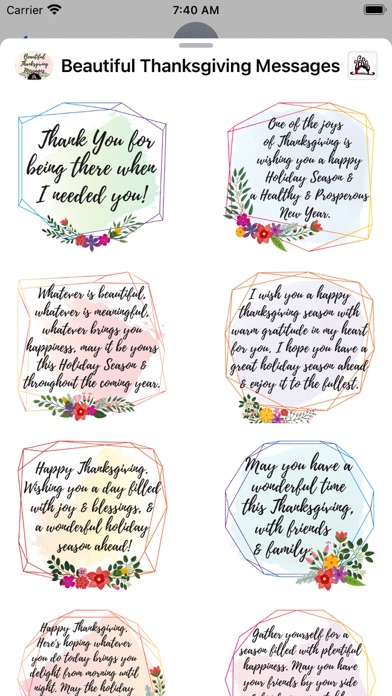 Carrier
7:40 AM
Beautiful
Thanksgiving
Messages
Beautiful Thanksgiving Messages
Thank You for
being there when
I needed you!
One of the joys
of Thanksgiving is
wishing you a happy
Holiday Season &
a Healthy & Prosperous
New Year.
Whatever is beautiful,
whatever is meaningful,
whatever brings you
happiness, may it be yours
this Holiday Season &
throughout the coming year.
I wish you a happy
thanksgiving season with
warm gratitude in my heart
for you. I hope you have a
great holiday season ahead
& enjoy it to the fullest.
Happy Thanksgiving.
Wishing you a day filled
with joy & blessings, &
a wonderful holiday
season ahead!
May you have a
wonderful time
this Thanksgiving,
with friends
& family.
Happy Thanksgiving.
Here's hoping whatever
you do today brings you
delight from morning until
night. May the holiday
Gather yourself for a
season filled with plentiful
happiness. May you have
your friends by your side